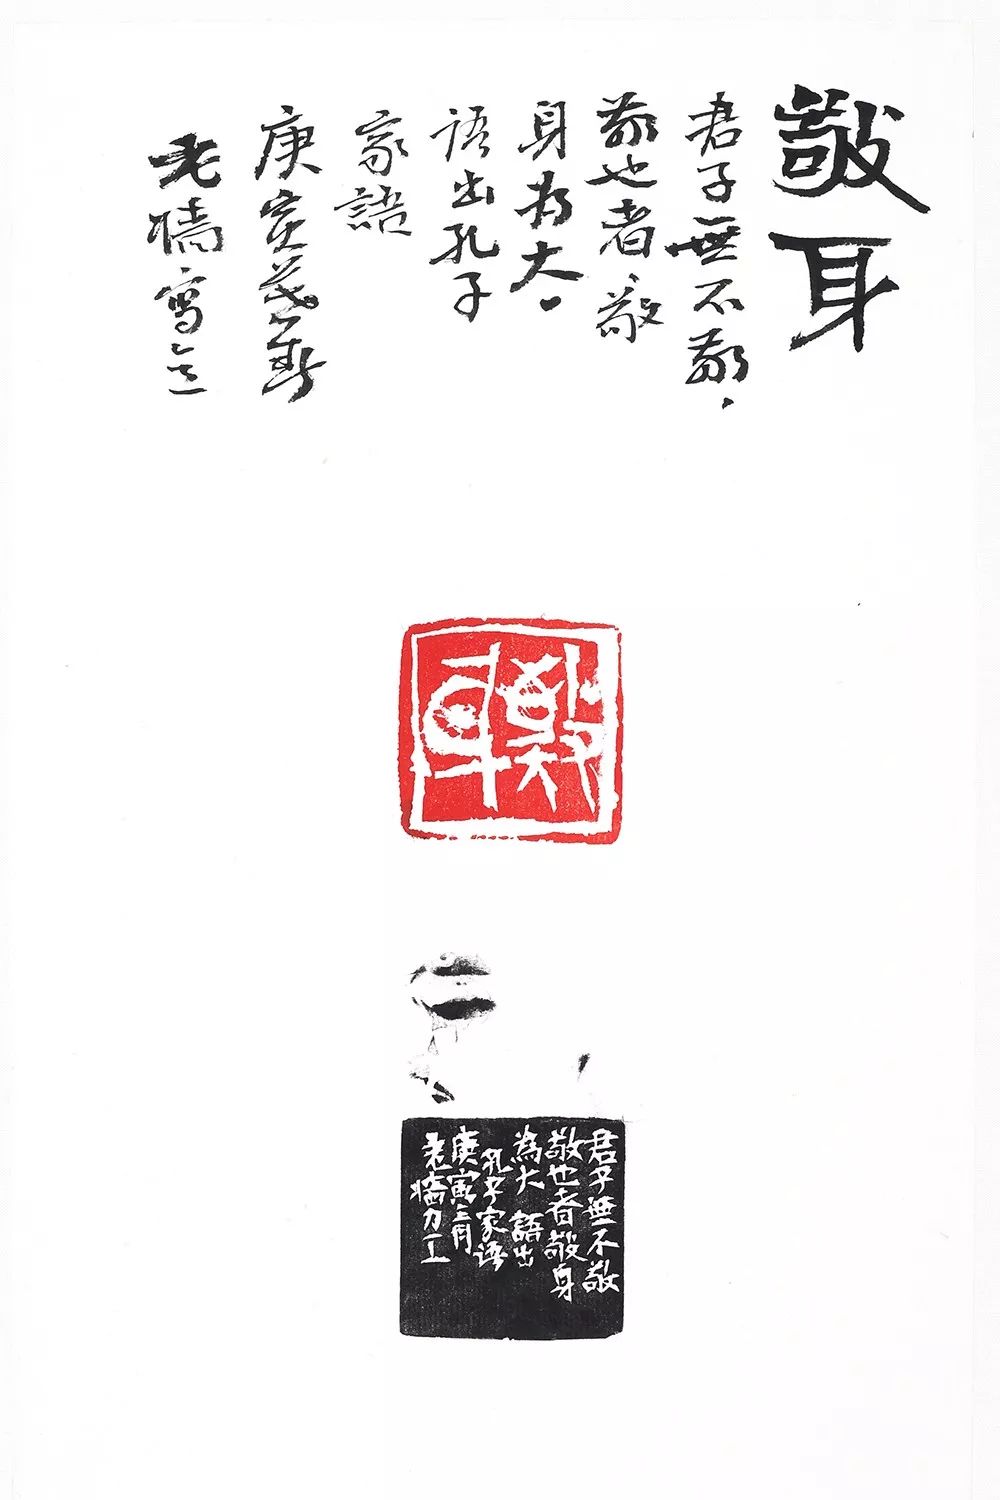 敬身
君子無不敬，
敬也者，敬
身為大。
語出孔子
家語
庚寅
老墙寫
敬身
君子無不敬
敬也者敬身
為大 語出
孔子家语
庚寅三月
老墙刀工